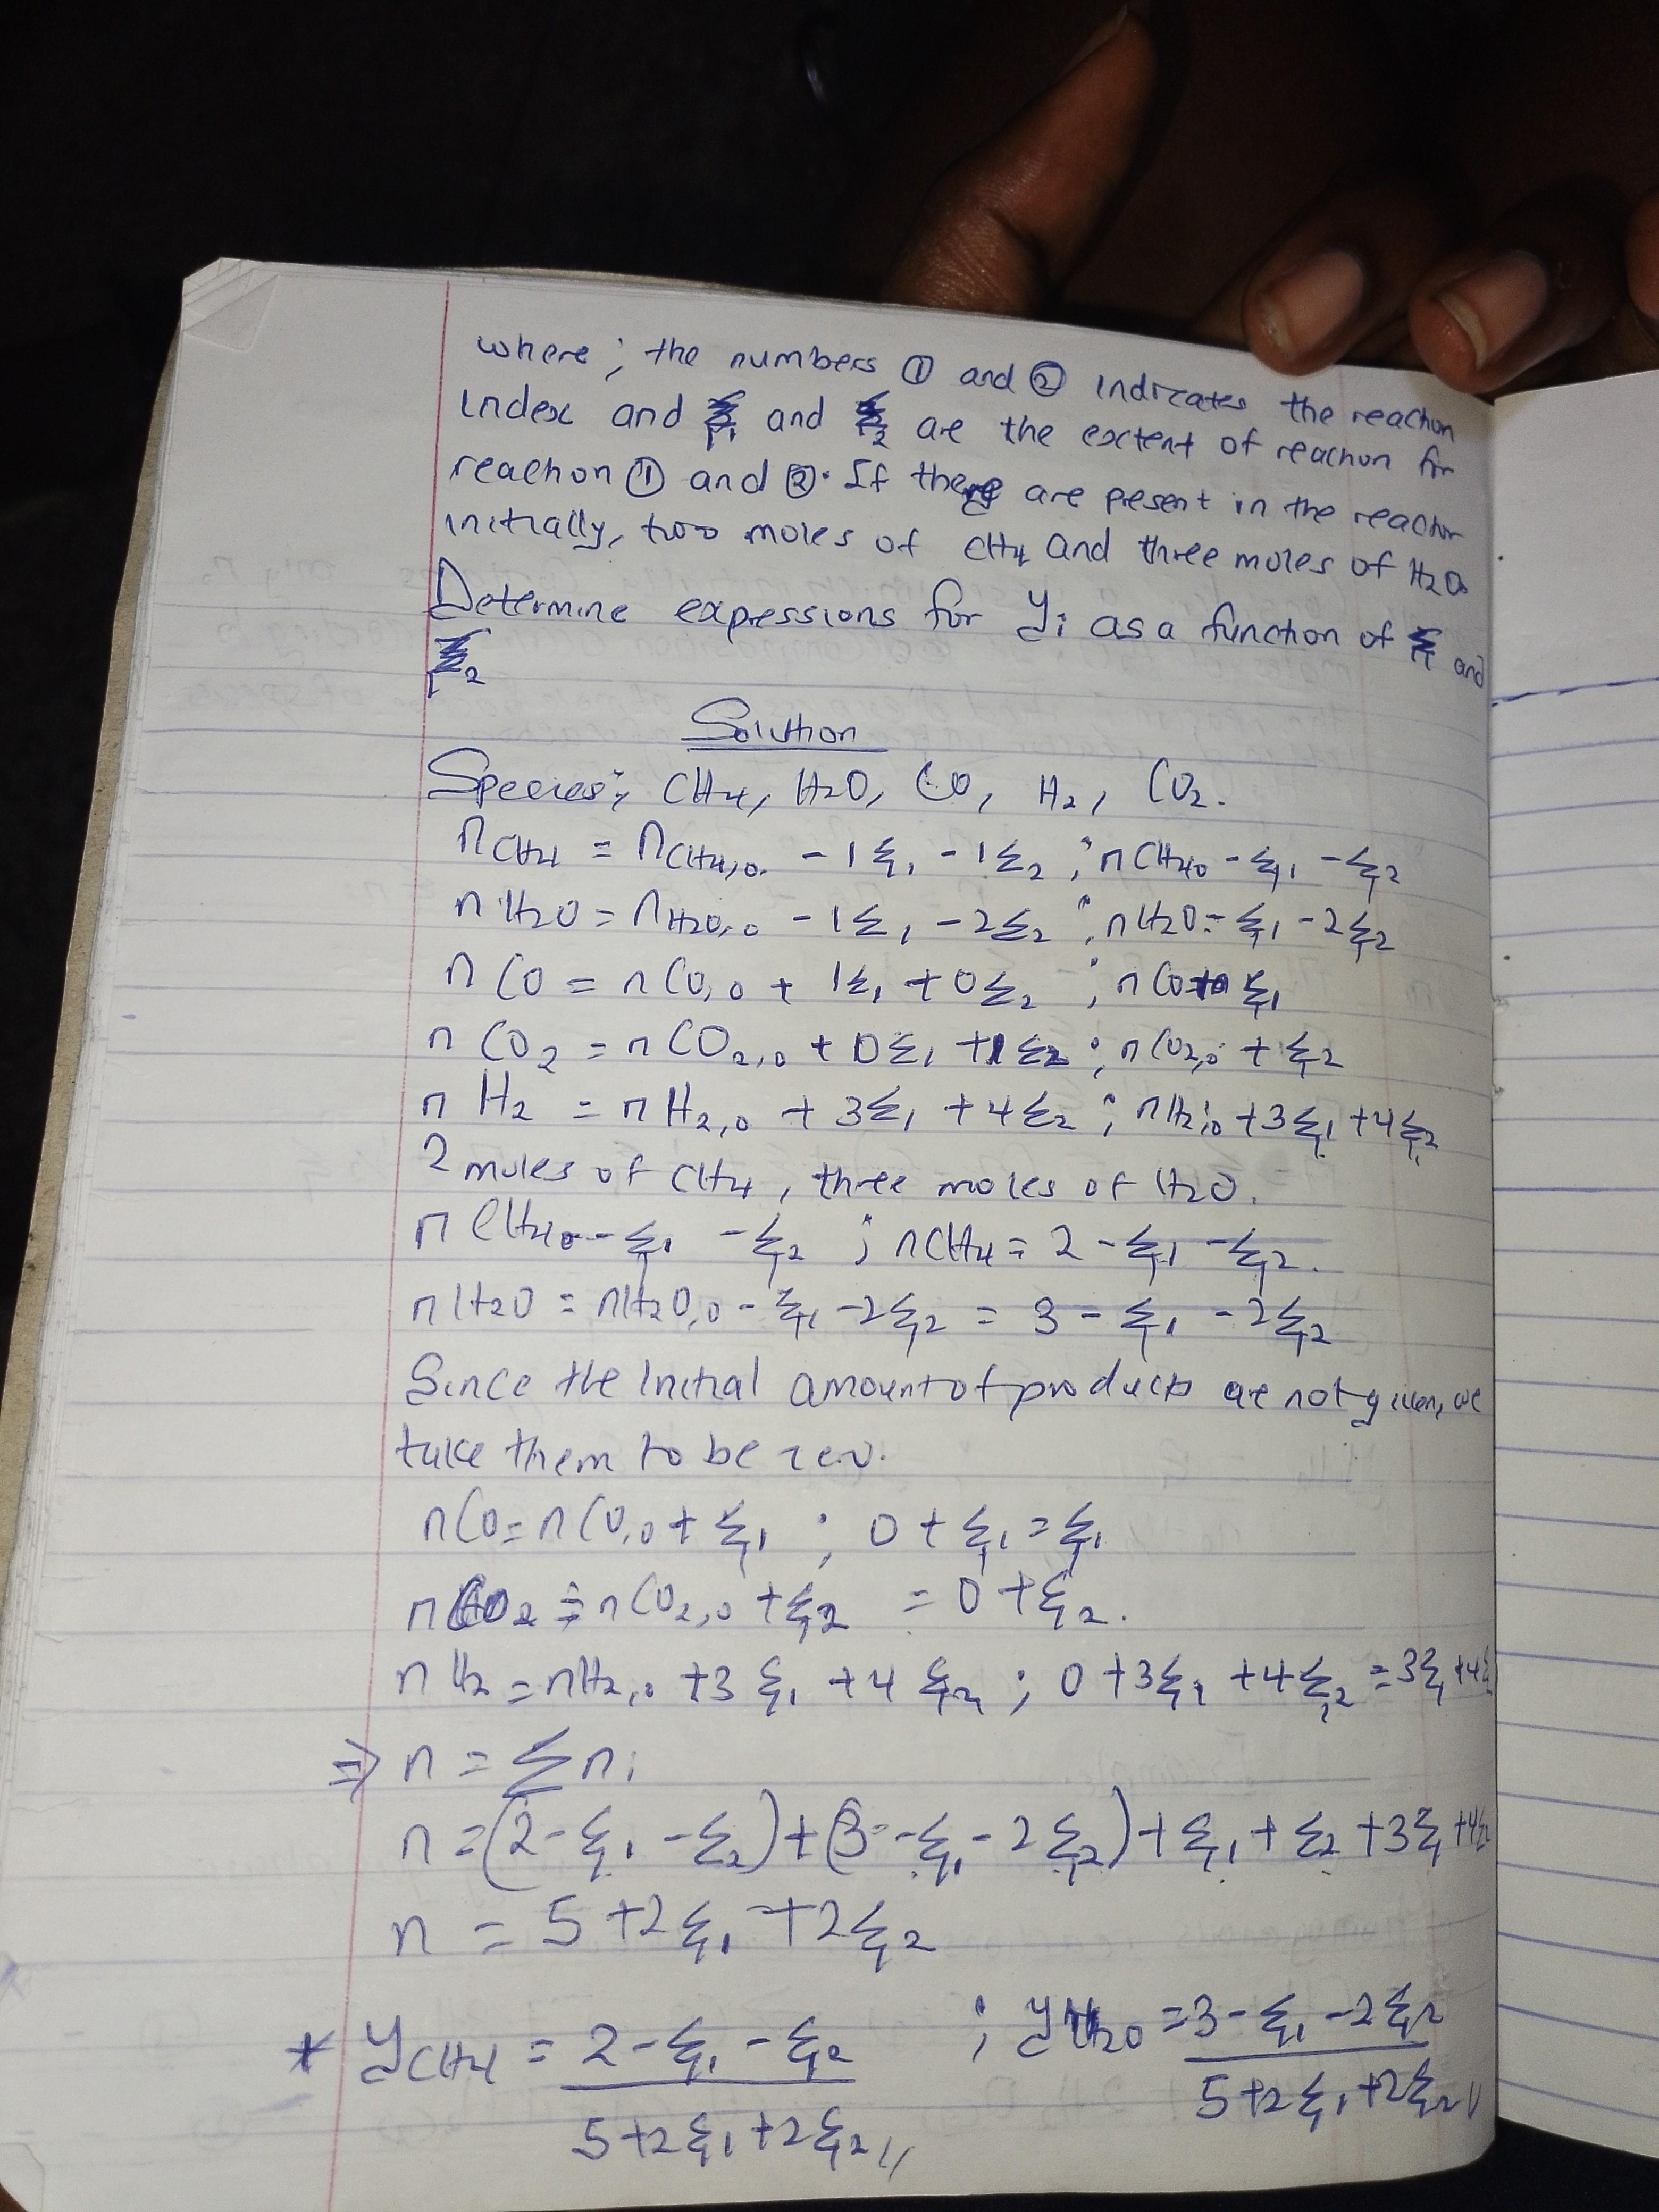 where; the numbers ① and ② indicates the reaction
index and ξ₁ and ξ₂ are the extent of reaction for
reaction ① and ②. If there are present in the reactor
initially, two moles of CH₄ and three moles of H₂O.
Determine expressions for yᵢ as a function of ξ₁ and
ξ₂
Solution
Species; CH₄, H₂O, CO, H₂, CO₂.
nCH₄ = nCH₄,₀ - 1ξ₁ - 1ξ₂ ; nCH₄₀ - ξ₁ - ξ₂
nH₂O = nH₂O,₀ - 1ξ₁ - 2ξ₂ ; nH₂O - ξ₁ - 2ξ₂
nCO = nCO,₀ + 1ξ₁ + 0ξ₂ ; nCO + ξ₁
nCO₂ = nCO₂,₀ + 0ξ₁ + 1ξ₂ ; nCO₂,₀ + ξ₂
nH₂ = nH₂,₀ + 3ξ₁ + 4ξ₂ ; nH₂,₀ + 3ξ₁ + 4ξ₂
2 moles of CH₄, three moles of H₂O.
nCH₄₀ - ξ₁ - ξ₂ ; nCH₄ = 2 - ξ₁ - ξ₂.
nH₂O = nH₂O,₀ - ξ₁ - 2ξ₂ = 3 - ξ₁ - 2ξ₂
Since the initial amount of products are not given, we
take them to be zero.
nCO = nCO,₀ + ξ₁ ; 0 + ξ₁ = ξ₁
nCO₂ = nCO₂,₀ + ξ₂ = 0 + ξ₂.
nH₂ = nH₂,₀ + 3ξ₁ + 4ξ₂ ; 0 + 3ξ₁ + 4ξ₂ = 3ξ₁ + 4ξ
⇒ n = Σnᵢ
n = (2 - ξ₁ - ξ₂) + (3 - ξ₁ - 2ξ₂) + ξ₁ + ξ₂ + 3ξ₁ + 4ξ₂
n = 5 + 2ξ₁ + 2ξ₂
* yCH₄ = 2 - ξ₁ - ξ₂ ; yH₂O = 3 - ξ₁ - 2ξ₂
5 + 2ξ₁ + 2ξ₂ // 5 + 2ξ₁ + 2ξ₂ //